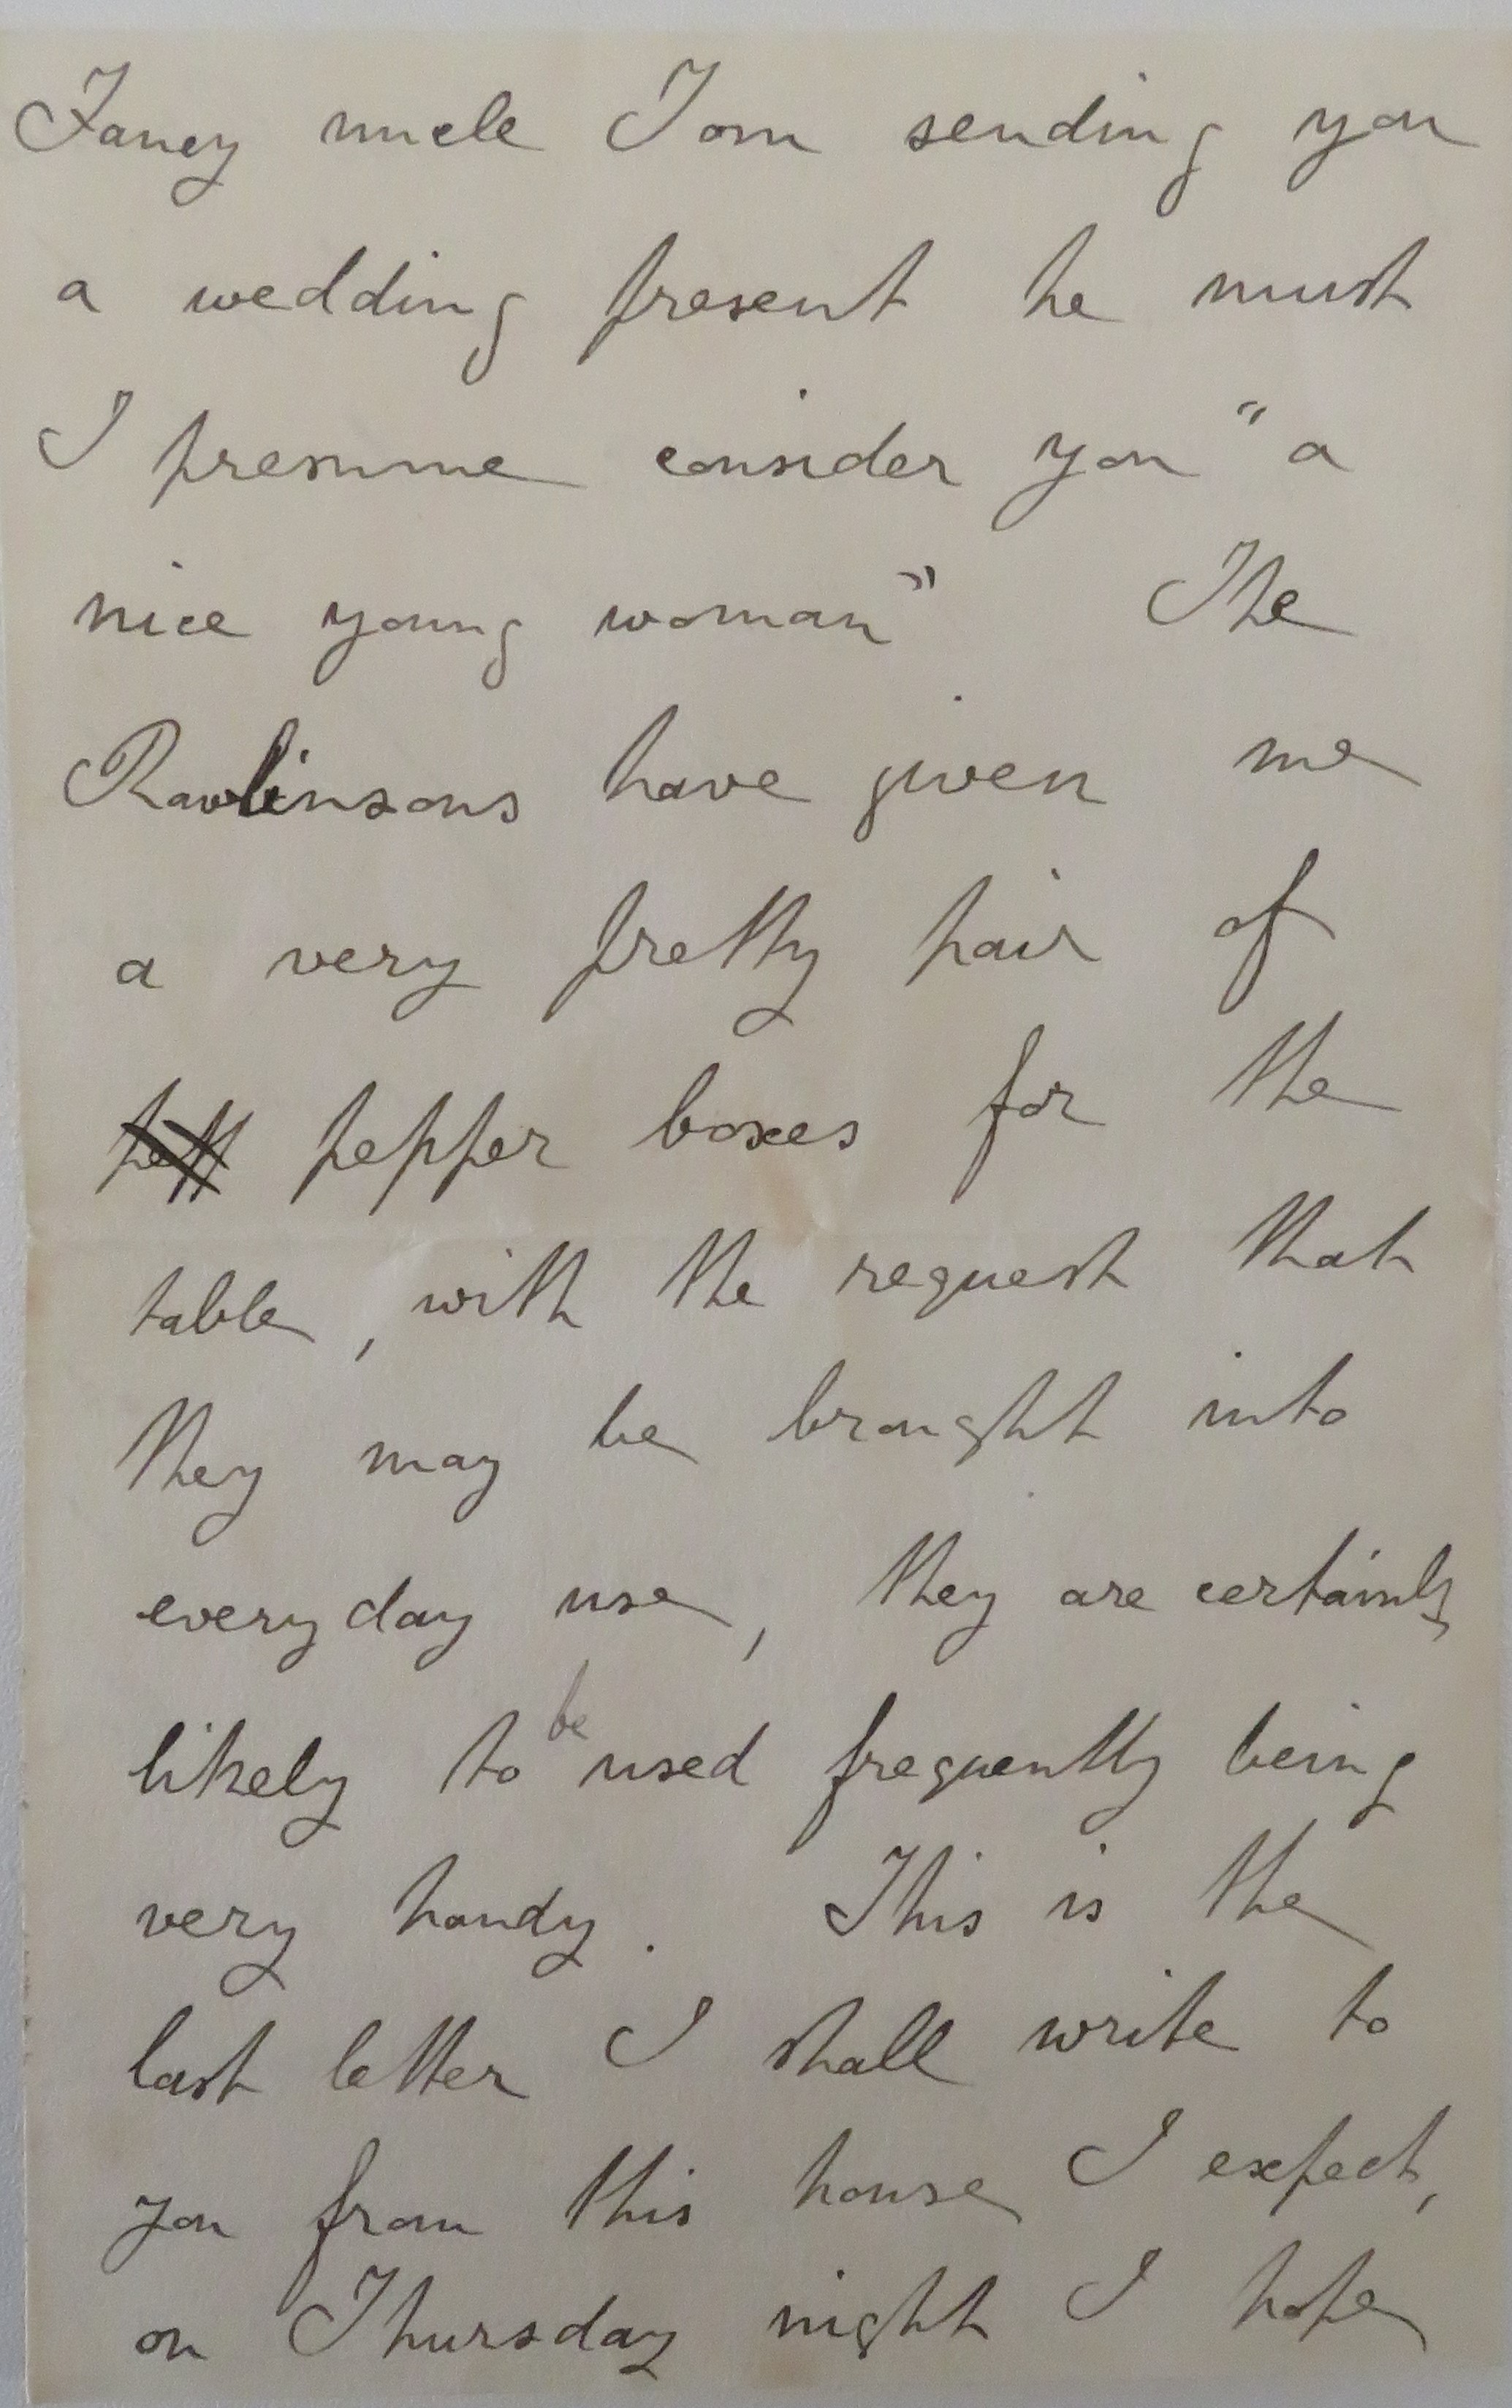 Fancy uncle Tom sending you
a wedding present he must
I presume consider you "a
nice young woman" The
Rawlinsons have given me
a very pretty pair of
pepper boxes for the
table, with the request that
they may be brought into
everyday use, they are certainly
likely to be used frequently being
very handy. This is the
last letter I shall write to
you from this house I expect,
on Thursday night I hope